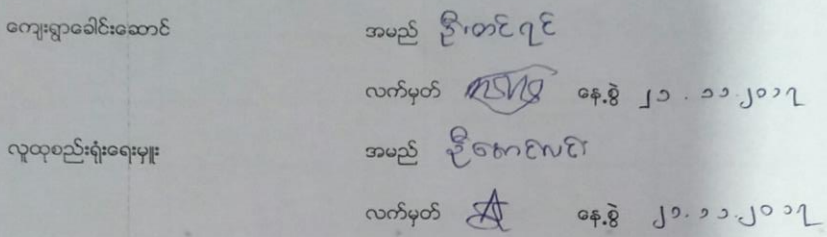 ကျေးရွာခေါင်းဆောင် အမည် ဦးတင်ငွင်
လက်မှတ် နေ့စွဲ ၂၁.၁၁.၂၀၁၇
လူထုစည်းရုံးရေးမှူး အမည် ဦးစောင်လင်း
လက်မှတ် နေ့စွဲ ၂၁.၁၁.၂၀၁၇